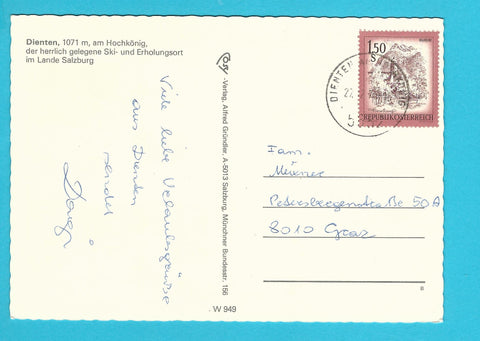 Dienten, 1071 m, am Hochkönig,
der herrlich gelegene Ski- und Erholungsort
im Lande Salzburg
Viele liebe Urlaubsgrüsse
aus Dienten
sendet
Cosy-Verlag, Alfred Gründler, A-5013 Salzburg, Münchner Bundesstr. 156
W 949
1.50
S
REPUBLIK ÖSTERREICH
DIENTEN
Fam.
Petersbergenstraße 50 A
8010 Graz
8